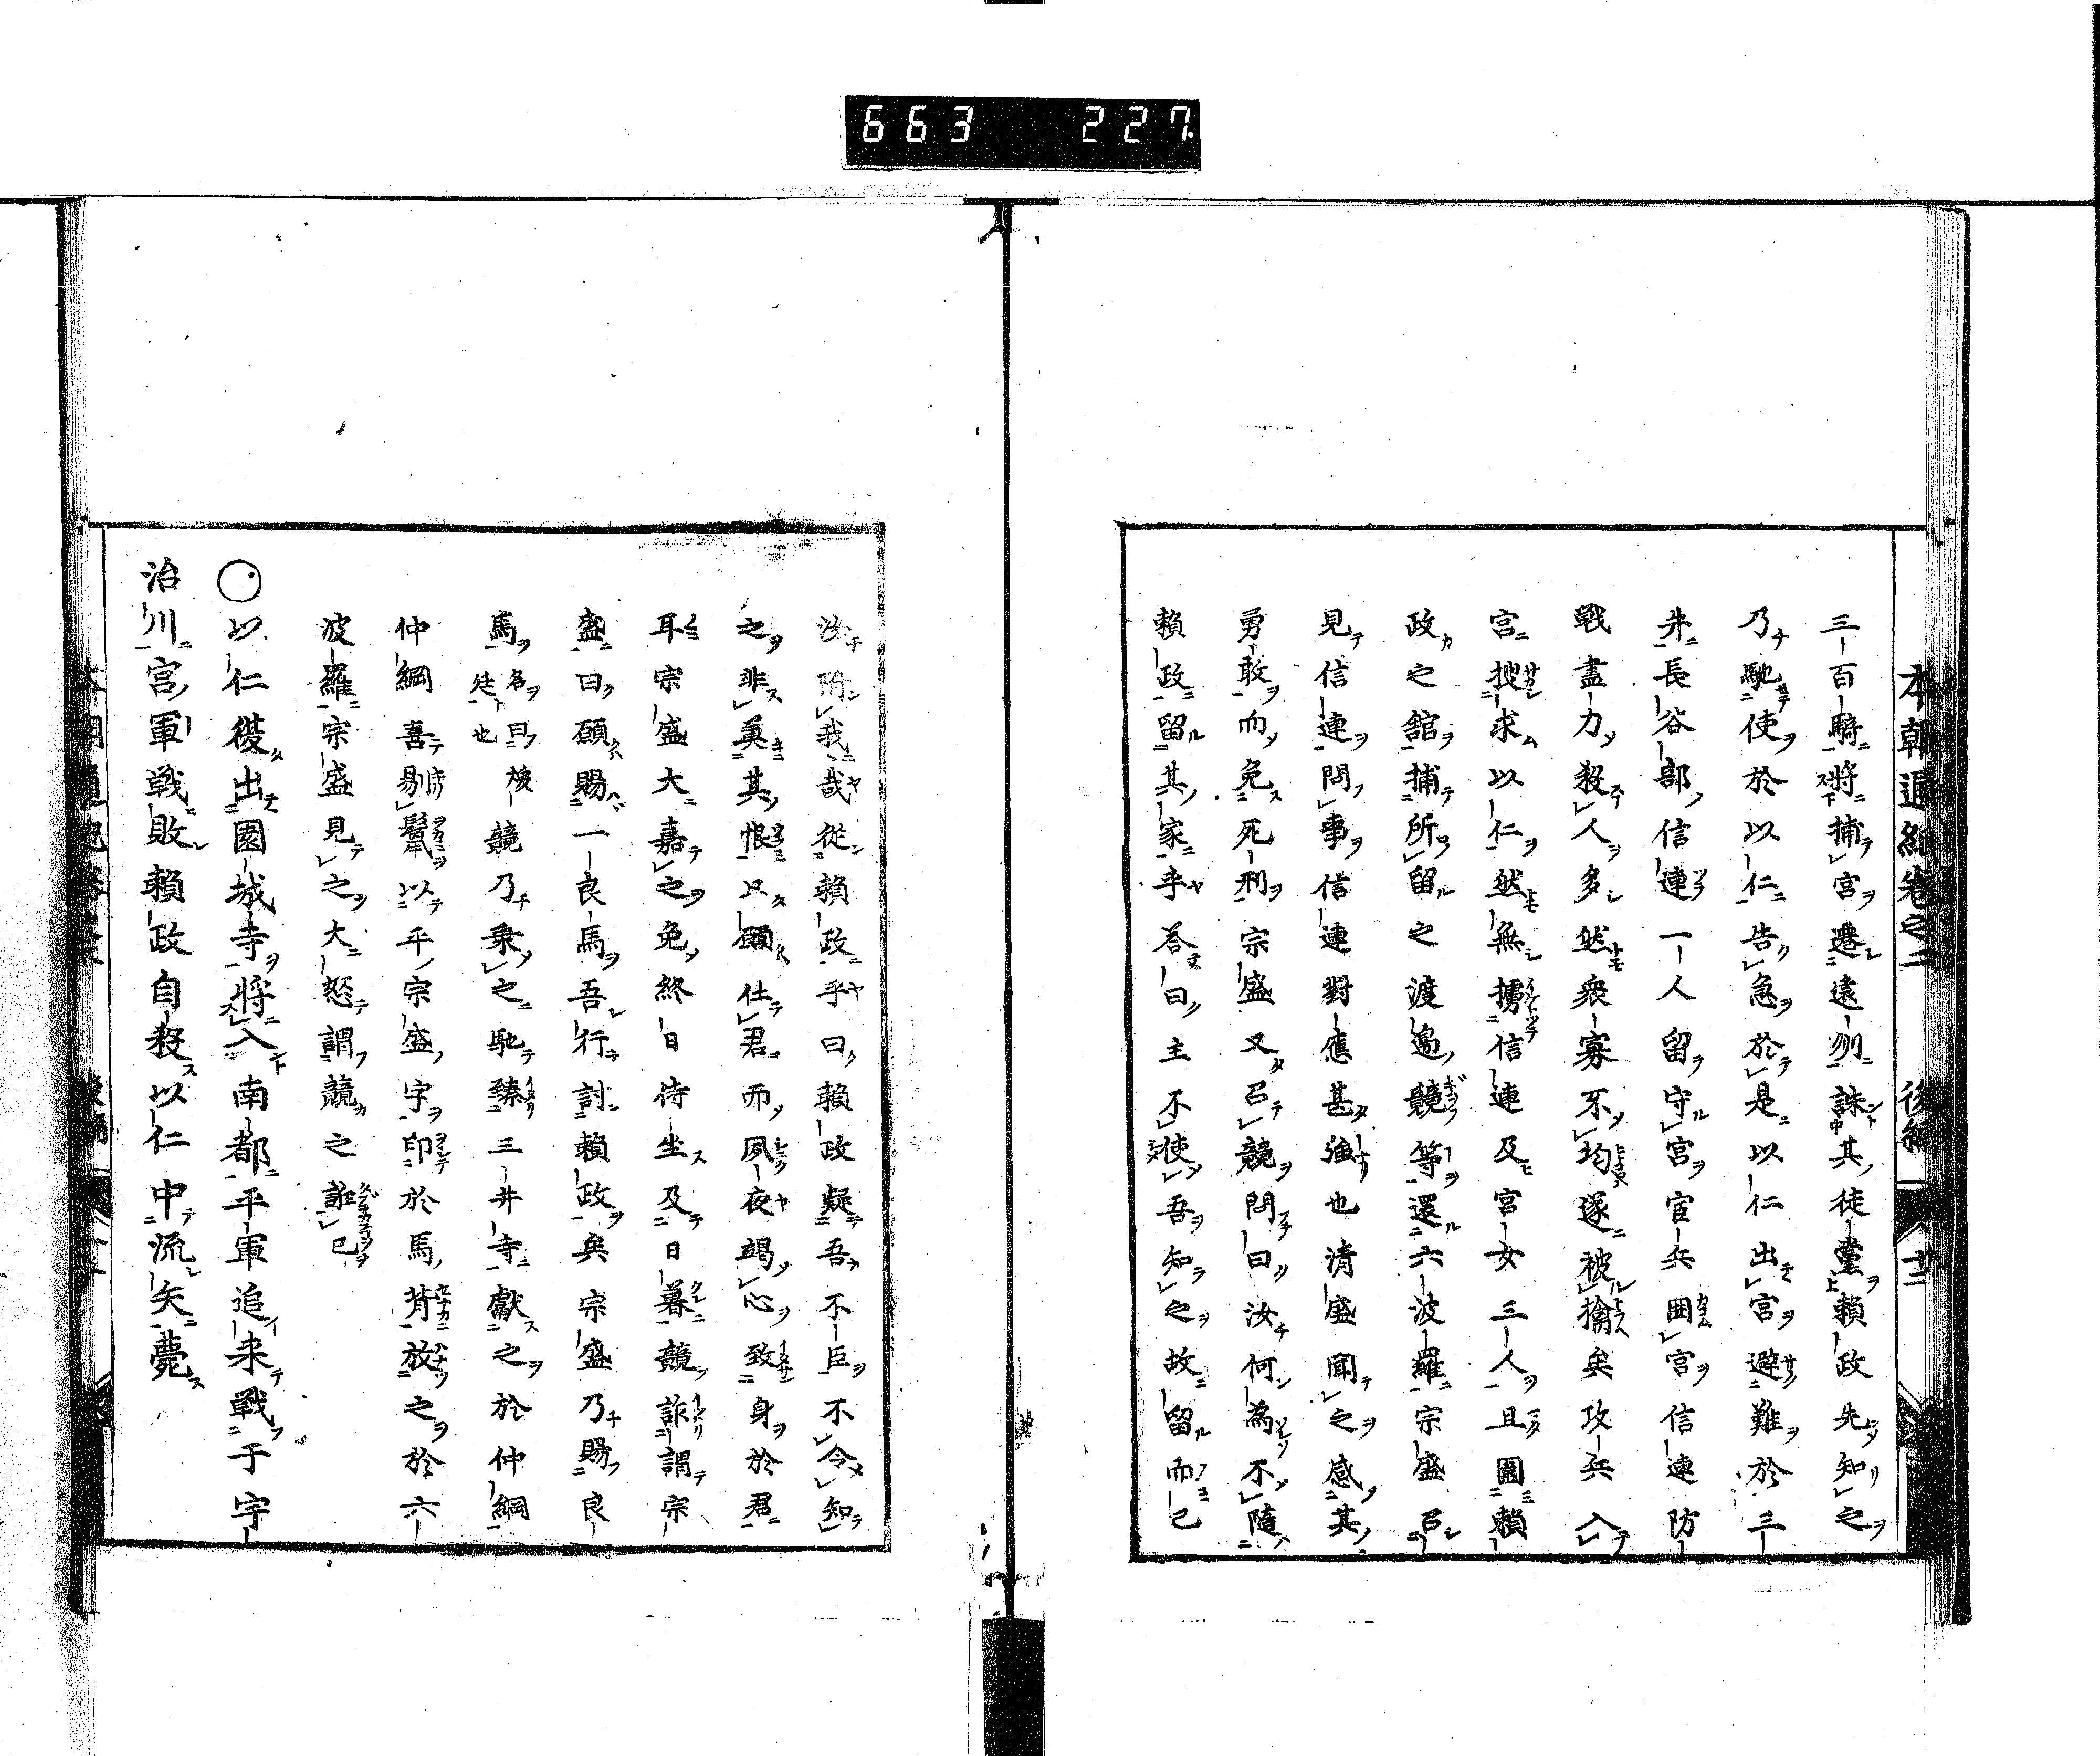 663 227
本朝通紀卷之二 後編 廿二
三百騎將捕宮遷遠州誅其徒黨賴政先知之
乃馳使於以仁告急於是以仁出宮避難於三
井長谷部信連一人留守宮官兵囲宮信連防
戰盡力殺人多然衆寡不均遂被擒矣攻兵入
宮搜求以仁然無擄信連及宮女三人且圍賴
政之舘捕所留之渡邉競等還六波羅宗盛召
見信連問事信連對應甚強也清盛聞之感其
勇敢而免死刑宗盛又召競問曰汝何為不隨
賴政留其家乎荅曰主不使吾知之故留而已
汝附我哉從賴政乎曰賴政疑吾不臣不令知
之非莫其恨只願仕君而夙夜竭心致身於君
耳宗盛大嘉之免終日侍坐及日暮競詐謂宗
盛曰願賜一良馬吾行討賴政矣宗盛乃賜良
馬名曰核廷也競乃乗之馳臻三井寺獻之於仲綱
仲綱喜剔鬣以平宗盛字印於馬背放之於六
波羅宗盛見之大怒謂競之誑己
○以仁復出園城寺將入南都平軍追来戰于宇
治川宮軍戰敗賴政自殺以仁中流矢薨